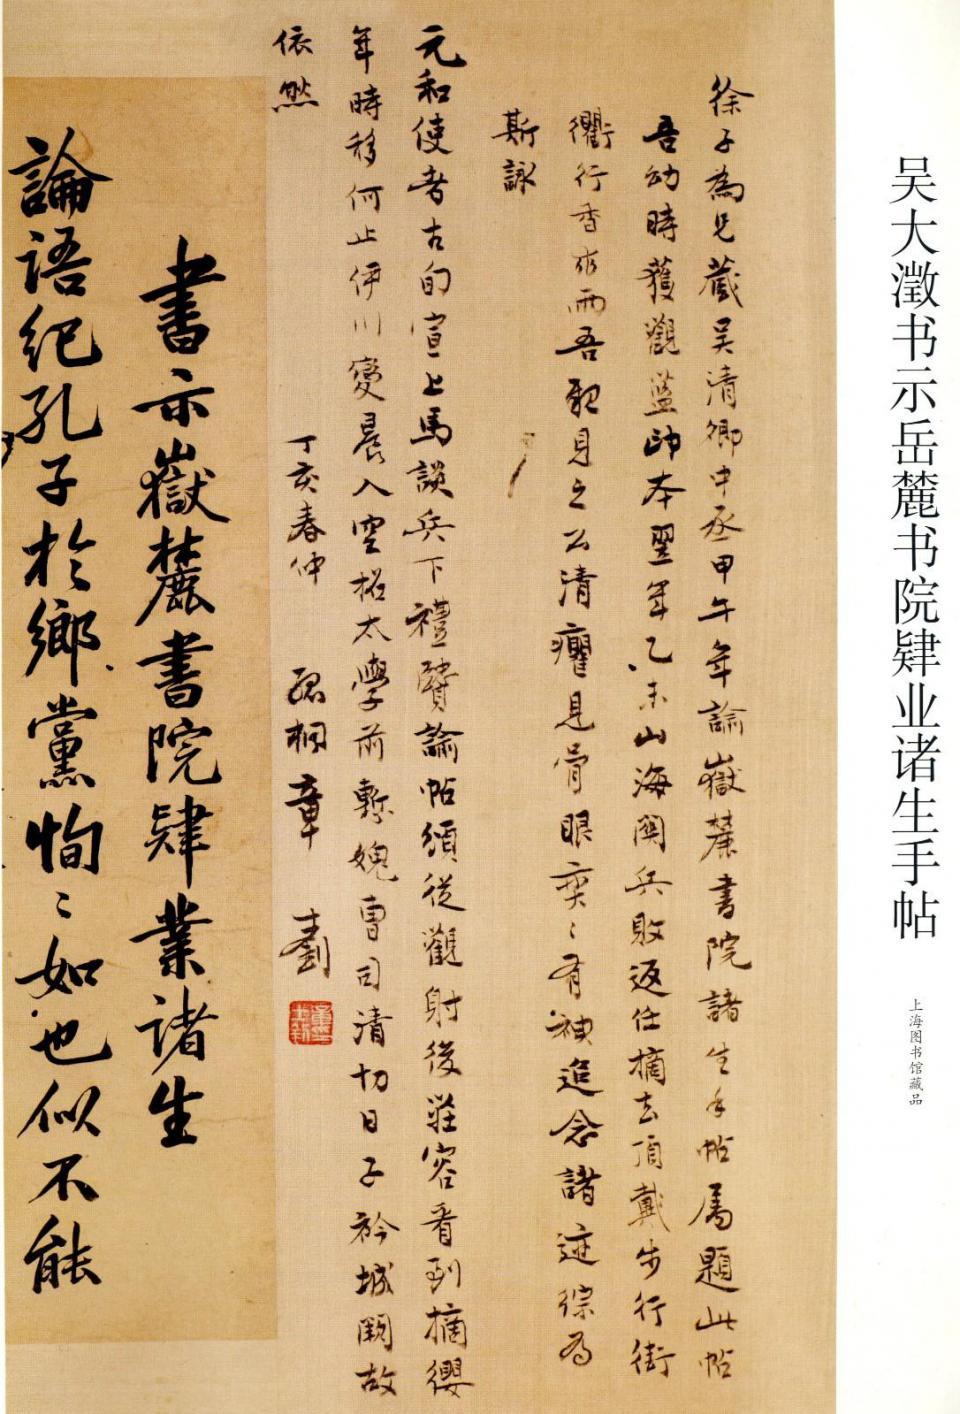 吴大澂书示岳麓书院肄业诸生手帖
上海图书馆藏品
徐子為兄藏吴清卿中丞甲午年諭嶽麓書院諸生手帖属題此帖
吾幼時獲觀藍印本翌年乙未山海關兵敗返任摘去頂戴步行街
衢行香求雨吾親見之公清癯見骨眼奕〻有神追念諸迹綜為
斯詠
元和使者古旬宣上馬談兵下禮賢論帖須從觀射後莊容看到摘纓
年時移何止伊川變晨入空招太學前慙媿曹司清切日子衿城闕故
依然
丁亥春仲 孤桐章士釗
書示嶽麓書院肄業諸生
論語紀孔子於鄉黨恂〻如也似不能